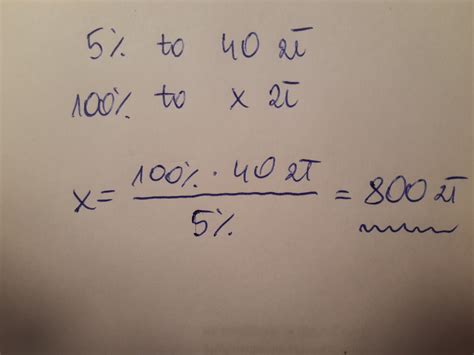 5% to 40 zł
100% to x zł
x = 100% · 40 zł / 5% = 800 zł